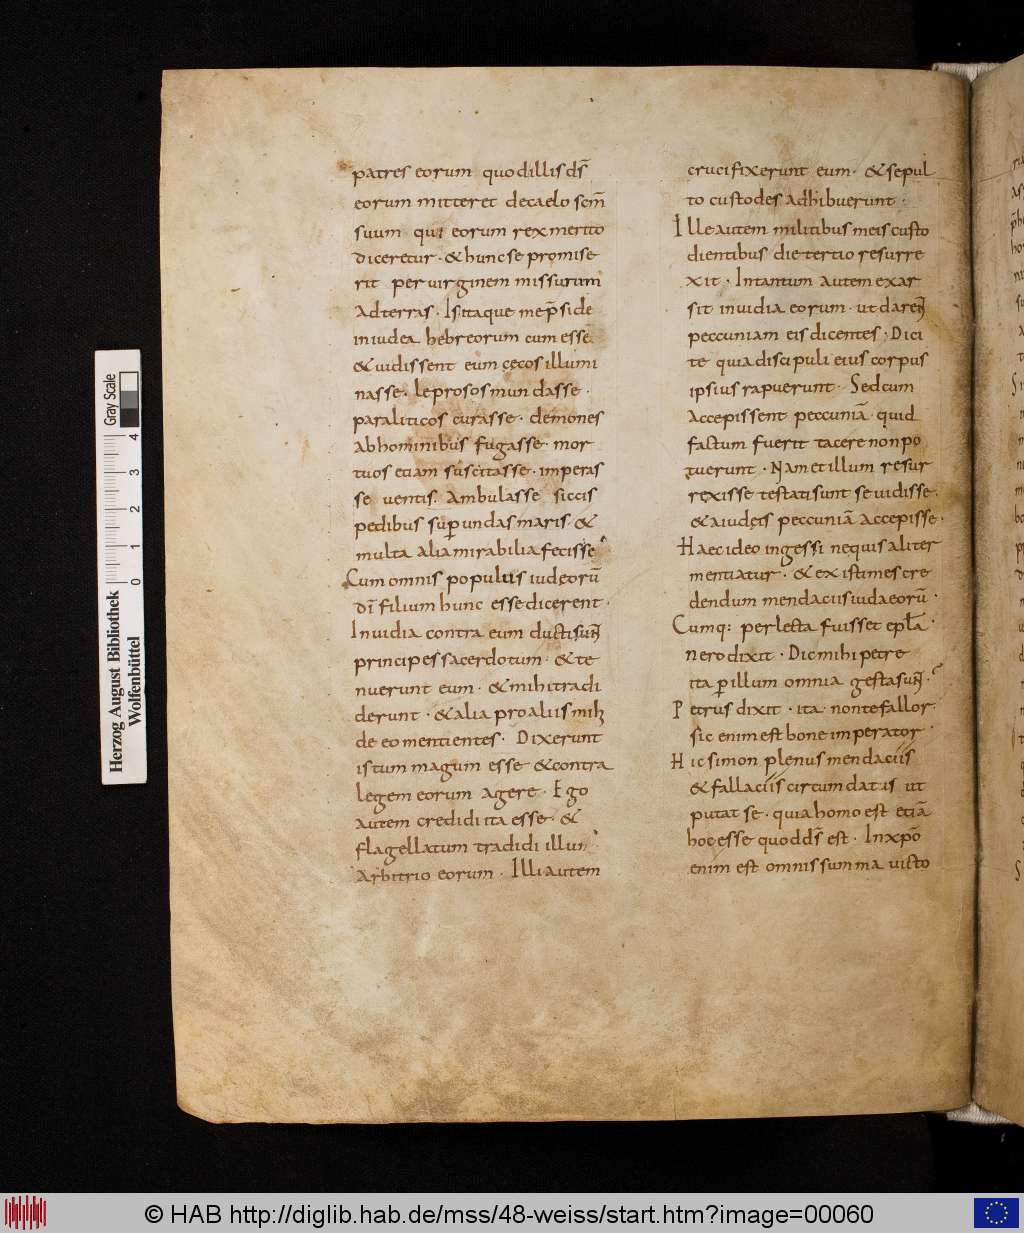 patres eorum quodillis ds̄
eorum mitteret decaelo scm̄
suum qui eorum rex merito
diceretur · & hunc se promise
rit per virginem missurum
Adterras · Isitaque me p̄side
in iudea hebreorum cum esse
& uidissent eum cęcos illumi
nasse · leprosos mundasse ·
paraliticos curasse · demones
abhominibus fugasse · mor
tuos etiam suscitasse · imperas
se ventis · Ambulasse siccis
pedibus sup undas maris · &
multa alia mirabilia fecisse
Cum omnis populus iudęorū
dī filium hunc esse dicerent ·
Inuidia contra eum ducti sun
principes sacerdotum · & te
nuerunt eum · & mihi tradi
derunt · & alia pro aliis mih
de eo mentientes · Dixerunt
istum magum esse & contra
legem eorum agere · Ego
autem credidi ita esse · &
flagellatum tradidi illum
Arbitrio eorum · Illi autem
crucifixerunt eum · & sepul
to custodes adhibuerunt ·
Ille autem militibus meis custo
dientibus die tertio resurre
xit · Intantum autem exar
sit inuidia eorum · ut daren
peccuniam eis dicentes · Dici
te quia discipuli eius corpus
ipsius rapuerunt · Sed cum
Accepissent peccuniā · quid
factum fuerit tacere non po
tuerunt · Nam et illum resur
rexisse testati sunt se uidisse ·
& aiudęis peccuniā accepisse ·
Haec ideo ingessi nequis aliter
mentiatur · & existimes cre
dendum mendaciis iudaeorū ·
Cumq: perlecta fuisset eplā ·
Nero dixit · Dic mihi petre
ita p illum omnia gesta sun ·
Petrus dixit · ita · non te fallor ·
sic enim est bone imperator ·
Hic simon plenus mendaciis
& fallaciis circumdatus ut
putat se · quia homo est etiā
hoc esse quod ds̄ est · Inxpō
enim est omnis summa uicto
Herzog August Bibliothek
Wolfenbüttel
0 1 2 3 4
Gray Scale
© HAB http://diglib.hab.de/mss/48-weiss/start.htm?image=00060